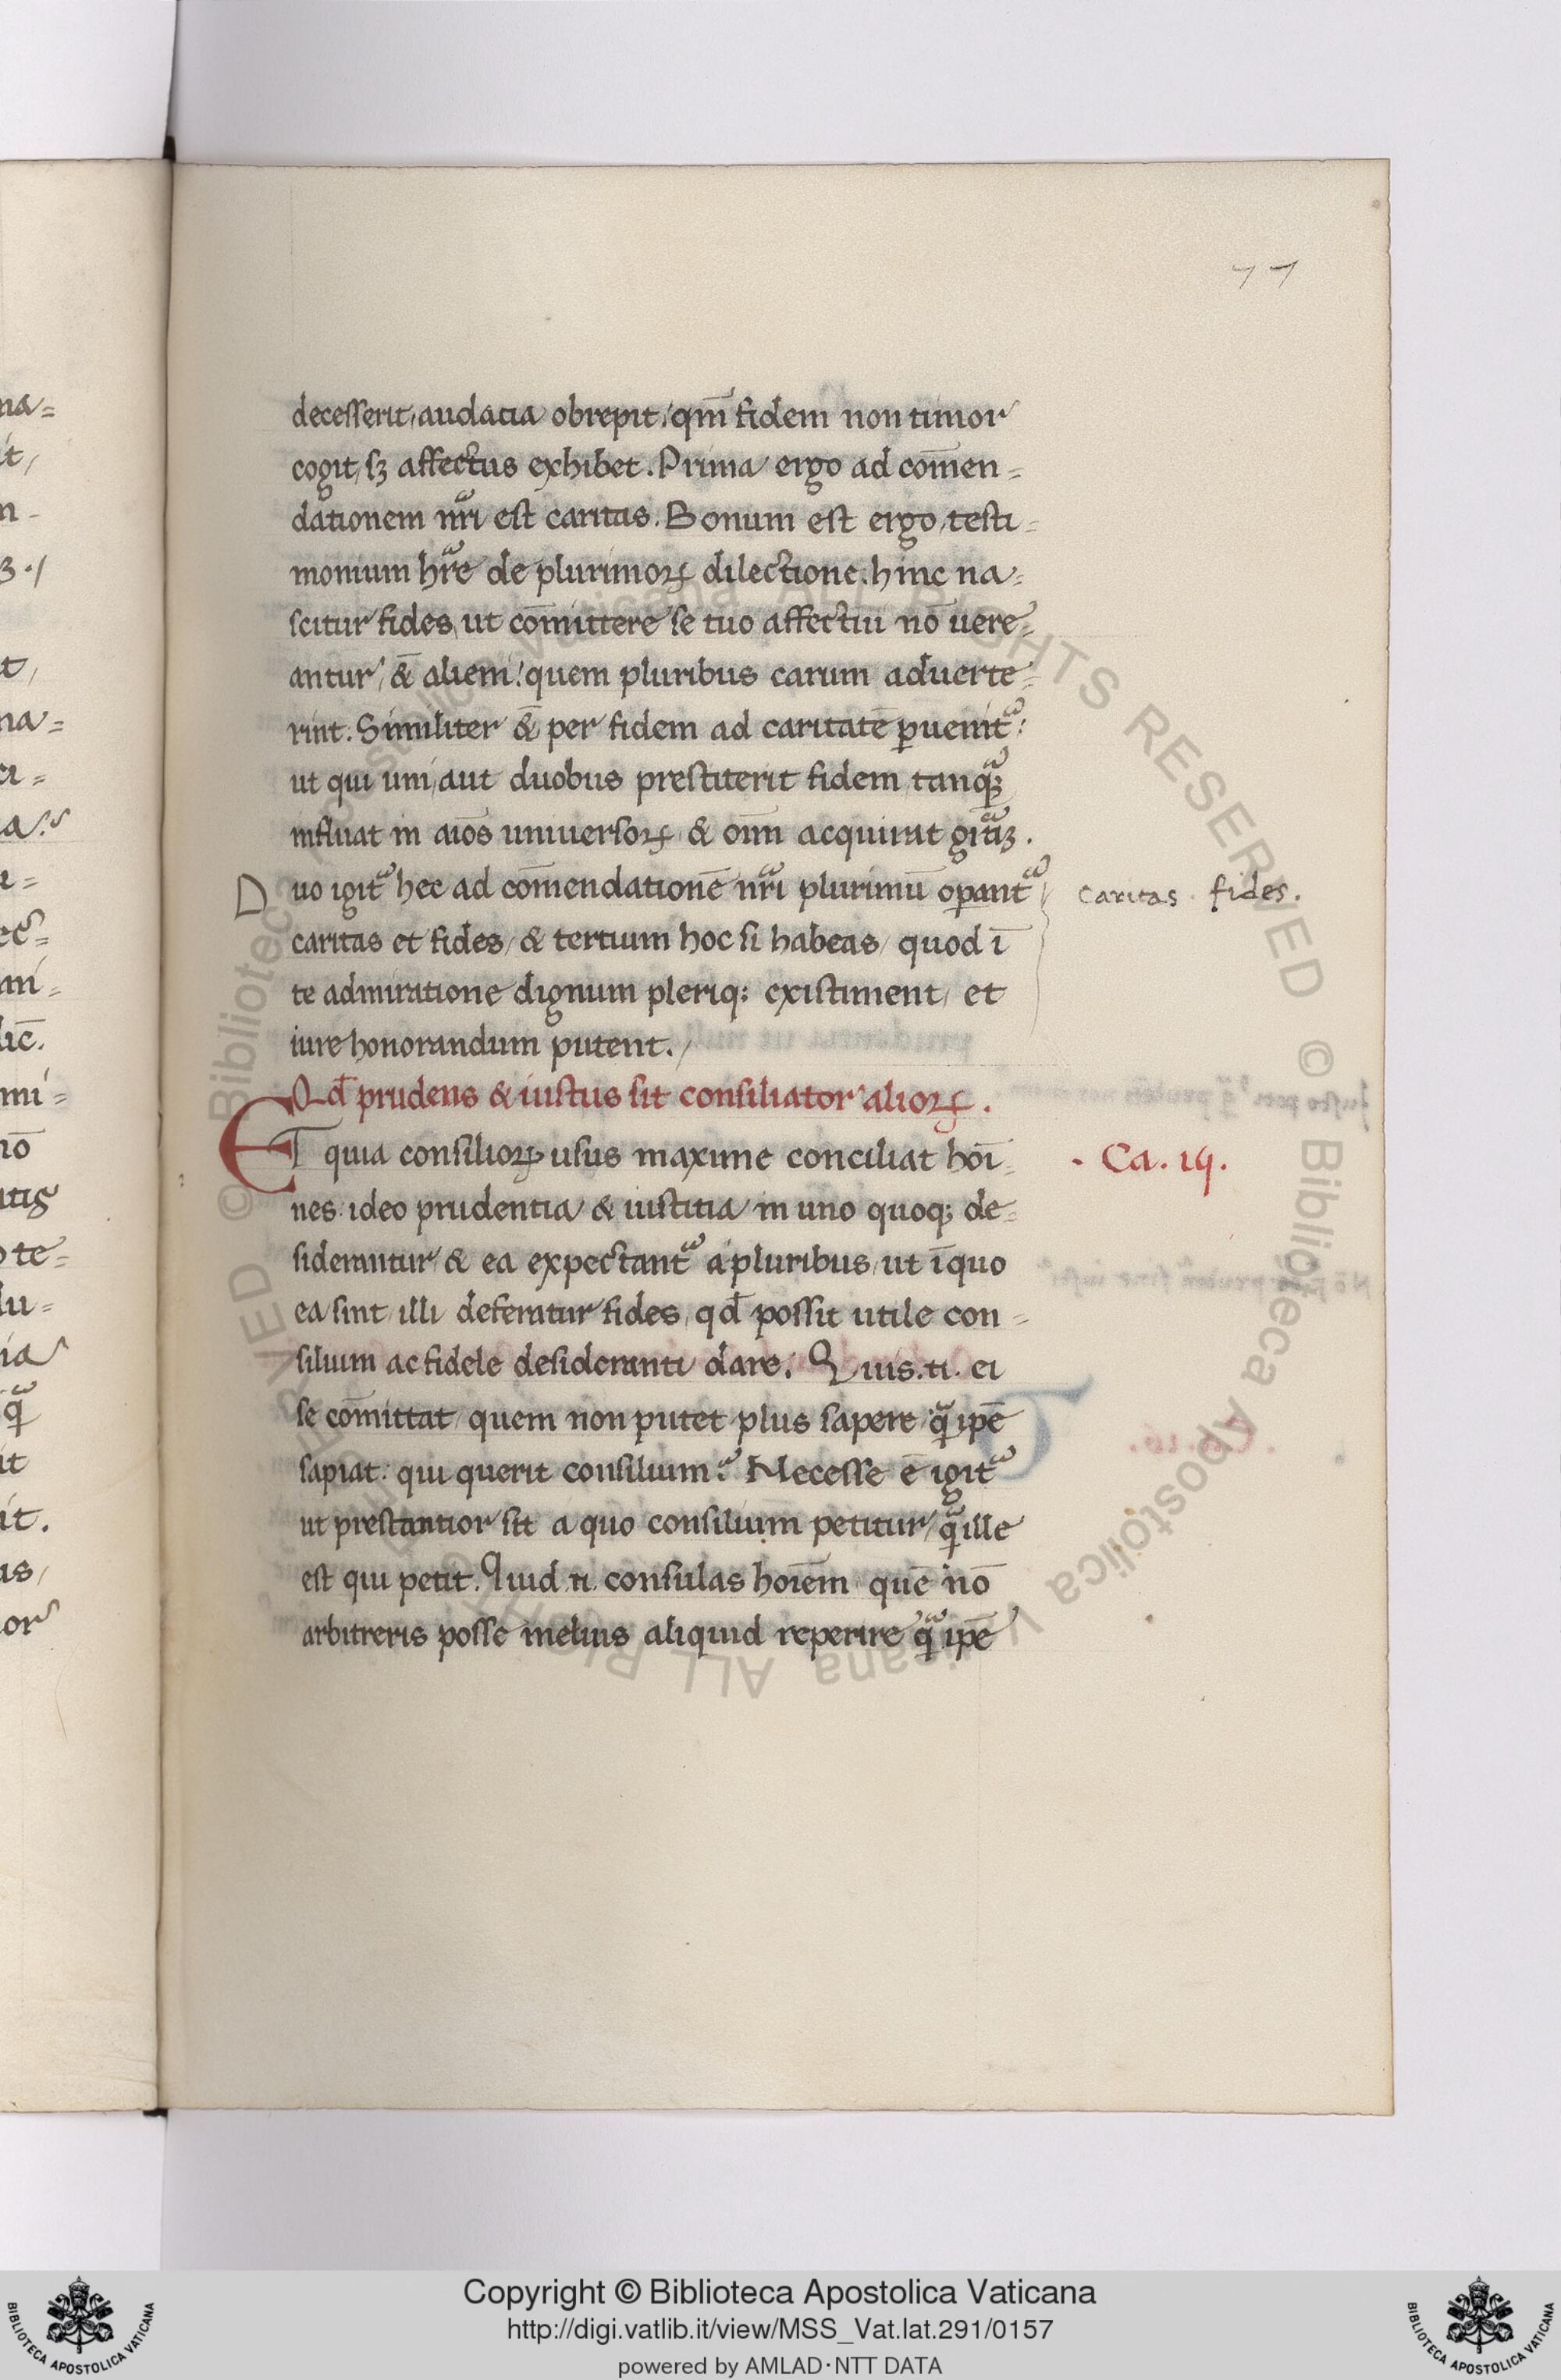 77
decesserit, audatia obrepit: qm̄ fidem non timor
cogit, sꝫ affectus exhibet. Prima ergo ad com̄en=
dationem nr̄i est caritas. Bonum est ergo, testi=
monium hr̄e de plurimoꝝ dilectione. hinc na=
scitur fides, ut com̄ittere se tuo affectui nō uere=
antur, & alieni: quem pluribus carum aduerte=
rint. Similiter & per fidem ad caritatē ꝑuenit᷑:
ut qui uni, aut duobus prestiterit fidem, tanqꝫ
influat in aīos uniuersoꝝ & oīm acquirat gr̄aꝫ.
Duo igit᷑ hec ad com̄endationē nr̄i plurimū oꝑant᷑
caritas · fides.
caritas et fides, & tertium hoc si habeas, quod ī
te admiratione dignum pleriqꝫ existiment, et
iure honorandum putent./
Qd̄ prudens & iustus sit consiliator alioꝝ.
ET quia consilioꝝ usus maxime conciliat hoī=
· Ca. 14.
nes. ideo prudentia & iustitia in uno quoqꝫ de=
siderantur & ea expectant᷑ a pluribus, ut ī quo
ea sint, illi deferatur fides, qd̄ possit utile con=
silium ac fidele desideranti dare. Quis .n. ei
se com̄ittat, quem non putet plus sapere q̄ ipē
sapiat: qui querit consilium? Necesse ē igit᷑
ut prestantior sit a quo consilium petitur, q̄ ille
est qui petit. Quid .n. consulas hoīem quē nō
arbitreris posse melius aliquid reperire q̄ ipē
na=
it,
t,
na=
a
lic̄.
mi=
nō
te=
lu=
ia
q̄
it
it.
us,
or
Copyright © Biblioteca Apostolica Vaticana
http://digi.vatlib.it/view/MSS_Vat.lat.291/0157
powered by AMLAD·NTT DATA
BIBLIOTECA APOSTOLICA VATICANA
BIBLIOTECA APOSTOLICA VATICANA